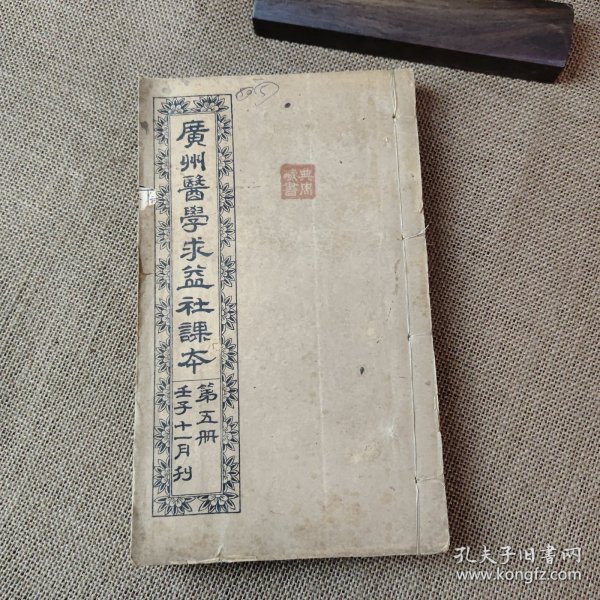 廣州醫學求益社課本
第五冊
壬子十一月刋
典周
藏書
孔夫子旧书网
www.kongfz.com